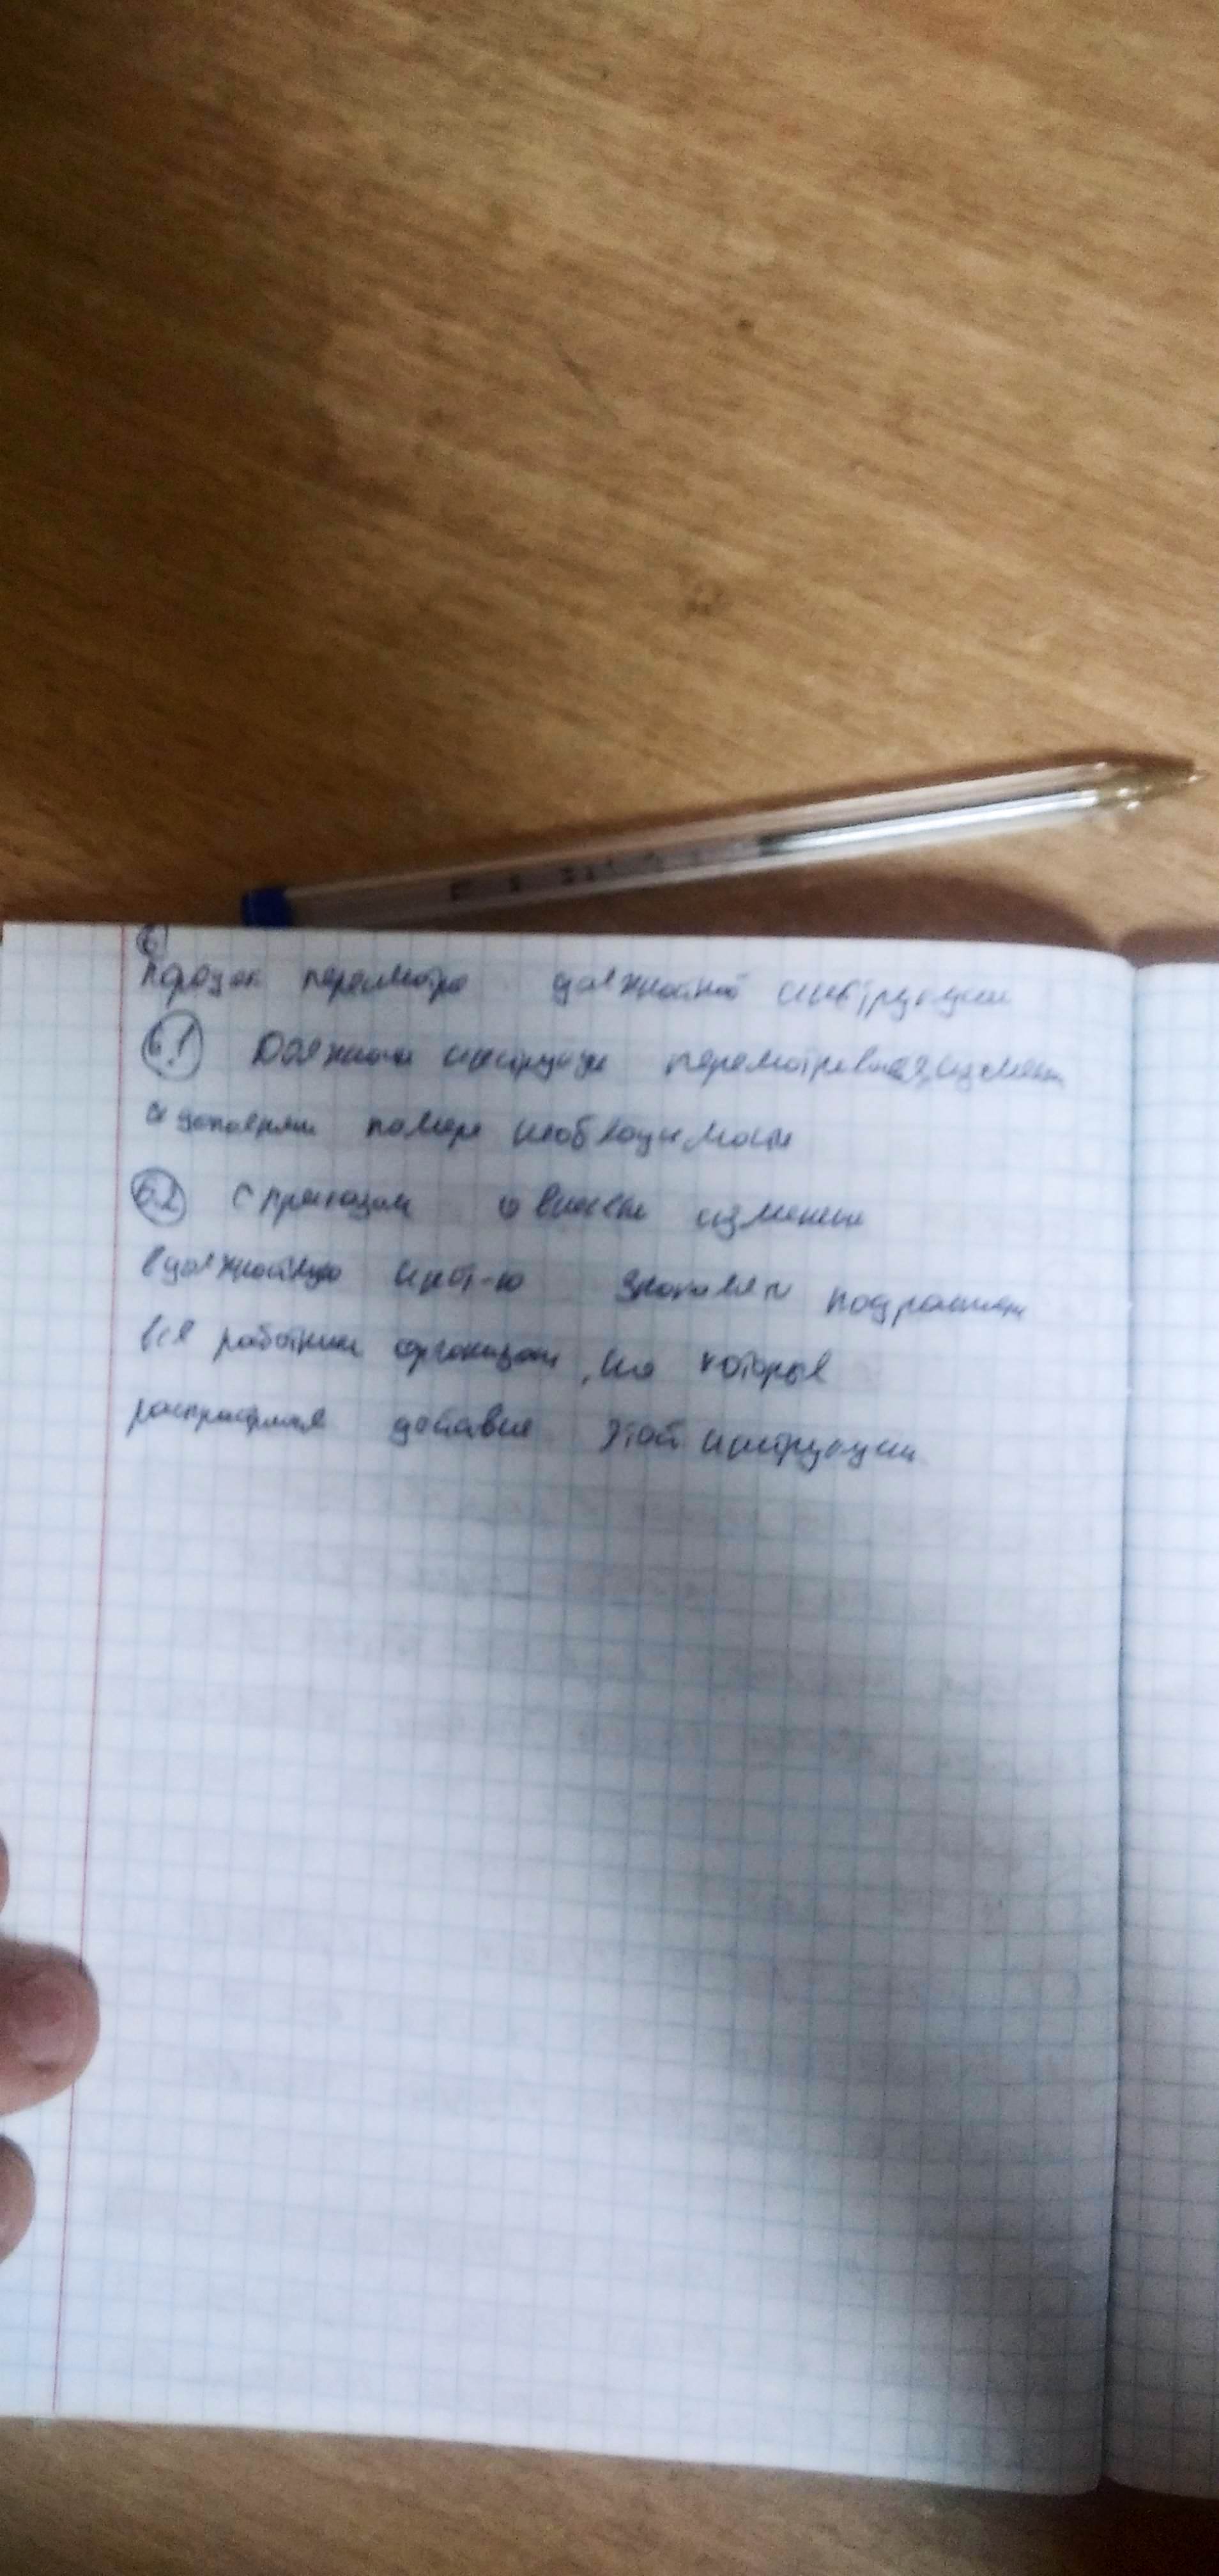 6
Порядок пересмотра должностной инструкции
6.1 Должностн инструкция пересматривается, изменен
и дополнен по мере необходимости
6.2 С приказом о внесен изменени
в должностную инст-ю под роспись
все работники организации, на которые
действие этой инструкции